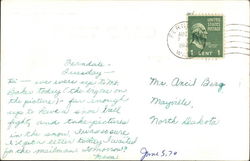 UNITED STATES POSTAGE
1 CENT
Ferndale -
Tuesday -
Hi - we were up to Mt.
Baker today (the lodge on
the picture) - fur enough
up to have a snow ball
fight and take pictures
in the snow.
a letter today. I waited
for the mailman
Mr. Arcil Berg
Maynels,
North Dakota
June 5, 70